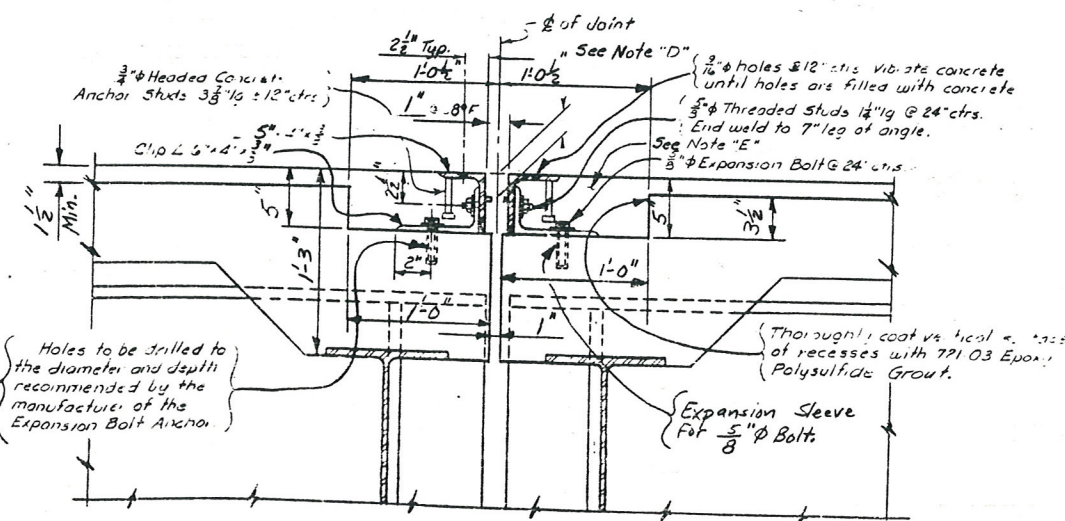 ℄ of Joint
2½" Typ.
See Note "D"
1'-0½"
1'-0½"
¾"φ Headed Concrete
Anchor Studs 3⅞"lg ± 12"ctrs
1" @ 68°F
9/16"φ holes @ 12" ctrs. Vibrate concrete
until holes are filled with concrete
Threaded Studs 1¼"lg @ 24"ctrs.
End weld to 7"leg of angle.
See Note "E"
Expansion Bolt @ 24" ctrs.
Clip ∠
1½"
Min.
5"
1'-3"
2½"
5"
3½"
2"
1'-0"
1'-0"
1"
Holes to be drilled to
the diameter and depth
recommended by the
manufacturer of the
Expansion Bolt Anchor.
Thoroughly coat vertical
of recesses with 721.03 Epoxy
Polysulfide Grout.
Expansion Sleeve
For 5/8"φ Bolt.